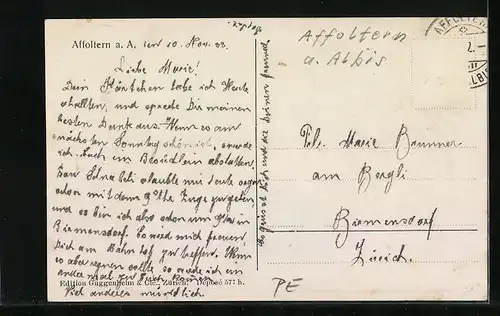 Affoltern a. A. den 10. Nov. 22.
Liebe Marie!
Dein Kärtchen habe ich heute
erhalten, und spreche Dir meinen
besten Dank aus. Wenn es am
nächsten Sonntag schön ist, werde
ich Euch ein Besüchlein abstatten.
Frau erlaubte mir heute
schon mit dem Zuge
und so bin ich also schon um Uhr in
Birmensdorf. Es wird mich freuen,
Dich am Bahnhof zu treffen. Wenn
es aber regnen sollte, so werde ich ein
ander mal zu Euch kommen.
Viel anderes mündlich.
Edition Guggenheim & Cie., Zürich. Déposé 577 b.
Es grüsst Dich und die Deinen freundl.
Affoltern
a. Albis
AFFOLTERN
Frl. Marie Brunner
am Bergli
Birmensdorf
Zürich.
PE